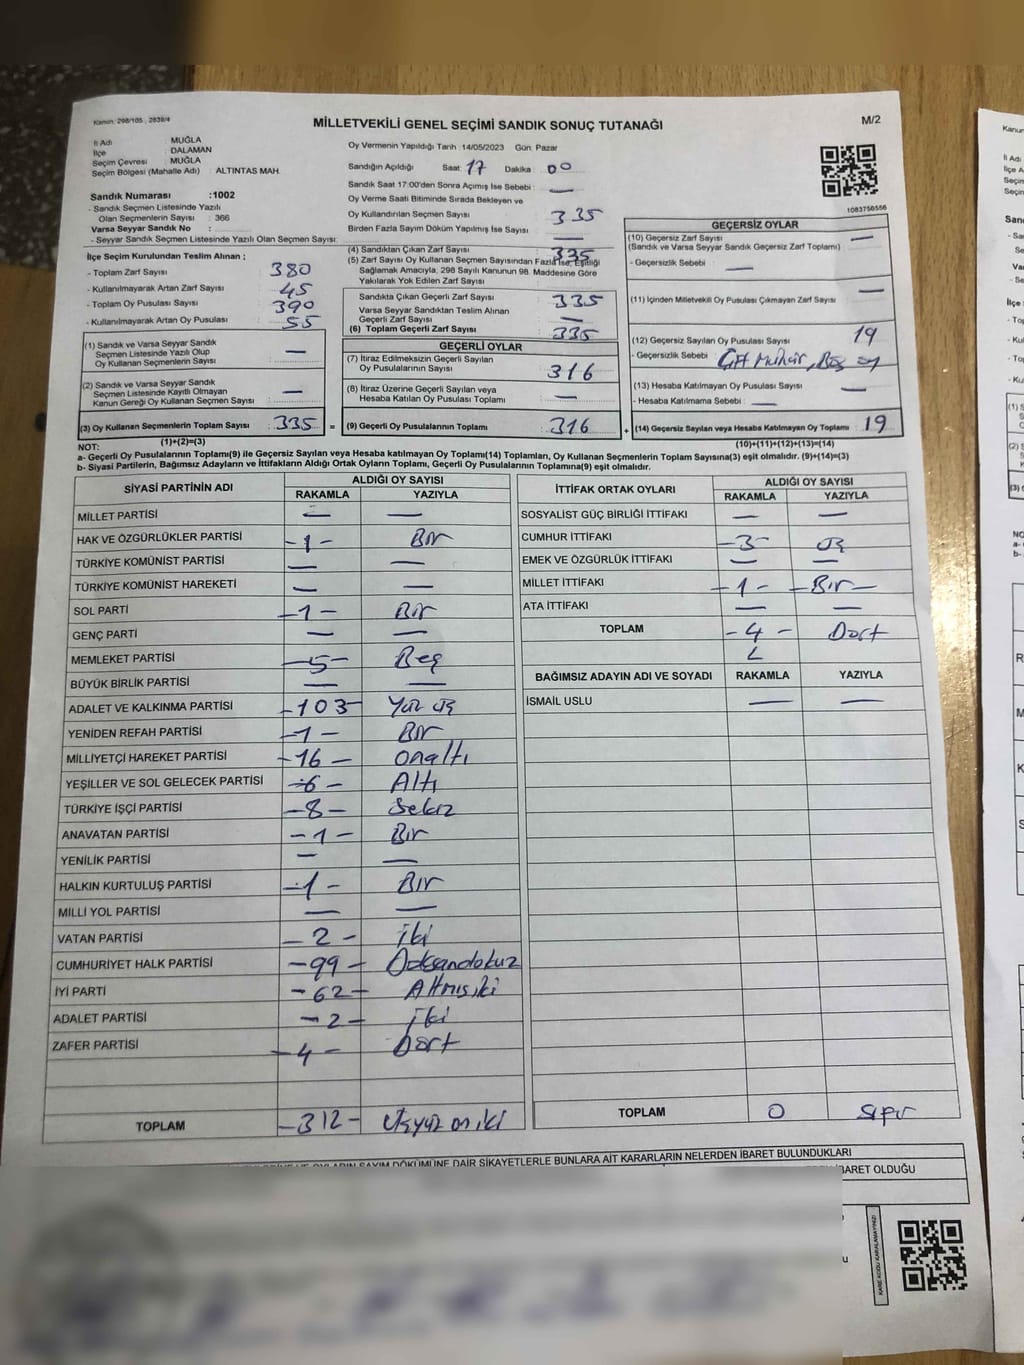 Kanun: 298/105 , 2839/4
MİLLETVEKİLİ GENEL SEÇİMİ SANDIK SONUÇ TUTANAĞI
M/2
İl Adı : MUĞLA
İlçe : DALAMAN
Seçim Çevresi : MUĞLA
Seçim Bölgesi (Mahalle Adı) : ALTINTAS MAH.
Sandık Numarası :1002
- Sandık Seçmen Listesinde Yazılı
Olan Seçmenlerin Sayısı : 366
Varsa Seyyar Sandık No :
- Seyyar Sandık Seçmen Listesinde Yazılı Olan Seçmen Sayısı:
İlçe Seçim Kurulundan Teslim Alınan ;
- Toplam Zarf Sayısı : 380
- Kullanılmayarak Artan Zarf Sayısı : 45
- Toplam Oy Pusulası Sayısı : 390
- Kullanılmayarak Artan Oy Pusulası : 55
(1) Sandık ve Varsa Seyyar Sandık
Seçmen Listesinde Yazılı Olup
Oy Kullanan Seçmenlerin Sayısı : —
(2) Sandık ve Varsa Seyyar Sandık
Seçmen Listesinde Kayıtlı Olmayan
Kanun Gereği Oy Kullanan Seçmen Sayısı : —
(3) Oy Kullanan Seçmenlerin Toplam Sayısı : 335 =
Oy Vermenin Yapıldığı Tarih :14/05/2023 Gün: Pazar
Sandığın Açıldığı Saat: 17 Dakika : 00
Sandık Saat 17:00'den Sonra Açımış İse Sebebi : —
Oy Verme Saati Bitiminde Sırada Bekleyen ve
Oy Kullandırılan Seçmen Sayısı : 335
Birden Fazla Sayım Döküm Yapılmış İse Sayısı : —
(4) Sandıktan Çıkan Zarf Sayısı : 335
(5) Zarf Sayısı Oy Kullanan Seçmen Sayısından Fazla İse, Eşitliği
Sağlamak Amacıyla, 298 Sayılı Kanunun 98. Maddesine Göre
Yakılarak Yok Edilen Zarf Sayısı :
Sandıkta Çıkan Geçerli Zarf Sayısı : 335
Varsa Seyyar Sandıktan Teslim Alınan
Geçerli Zarf Sayısı : —
(6) Toplam Geçerli Zarf Sayısı : 335
GEÇERLİ OYLAR
(7) İtiraz Edilmeksizin Geçerli Sayılan
Oy Pusulalarının Sayısı : 316
(8) İtiraz Üzerine Geçerli Sayılan veya
Hesaba Katılan Oy Pusulası Toplamı : —
(9) Geçerli Oy Pusulalarının Toplamı : 316 +
1083756556
GEÇERSİZ OYLAR
(10) Geçersiz Zarf Sayısı : —
(Sandık ve Varsa Seyyar Sandık Geçersiz Zarf Toplamı)
- Geçersizlik Sebebi : —
(11) İçinden Milletvekili Oy Pusulası Çıkmayan Zarf Sayısı : —
(12) Geçersiz Sayılan Oy Pusulası Sayısı : 19
- Geçersizlik Sebebi : Çift Mühür, Boş oy
(13) Hesaba Katılmayan Oy Pusulası Sayısı : —
- Hesaba Katılmama Sebebi : —
(14) Geçersiz Sayılan veya Hesaba Katılmayan Oy Toplamı : 19
NOT: (1)+(2)=(3) (10)+(11)+(12)+(13)=(14)
a- Geçerli Oy Pusulalarının Toplamı(9) ile Geçersiz Sayılan veya Hesaba katılmayan Oy Toplamı(14) Toplamları, Oy Kullanan Seçmenlerin Toplam Sayısına(3) eşit olmalıdır. (9)+(14)=(3)
b- Siyasi Partilerin, Bağımsız Adayların ve İttifakların Aldığı Ortak Oyların Toplamı, Geçerli Oy Pusulalarının Toplamına(9) eşit olmalıdır.
SİYASİ PARTİNİN ADI ALDIĞI OY SAYISI
RAKAMLA YAZIYLA
MİLLET PARTİSİ — —
HAK VE ÖZGÜRLÜKLER PARTİSİ -1- Bir
TÜRKİYE KOMÜNİST PARTİSİ — —
TÜRKİYE KOMÜNİST HAREKETİ — —
SOL PARTİ -1- Bir
GENÇ PARTİ — —
MEMLEKET PARTİSİ -5- Beş
BÜYÜK BİRLİK PARTİSİ — —
ADALET VE KALKINMA PARTİSİ -103- Yüz üç
YENİDEN REFAH PARTİSİ -1- Bir
MİLLİYETÇİ HAREKET PARTİSİ -16- onaltı
YEŞİLLER VE SOL GELECEK PARTİSİ -6- Altı
TÜRKİYE İŞÇİ PARTİSİ -8- Sekiz
ANAVATAN PARTİSİ -1- Bir
YENİLİK PARTİSİ — —
HALKIN KURTULUŞ PARTİSİ -1- Bir
MİLLİ YOL PARTİSİ — —
VATAN PARTİSİ -2- iki
CUMHURİYET HALK PARTİSİ -99- Doksandokuz
İYİ PARTİ -62- Altmışiki
ADALET PARTİSİ -2- iki
ZAFER PARTİSİ -4- Dört
TOPLAM -312- Üçyüz on iki
İTTİFAK ORTAK OYLARI ALDIĞI OY SAYISI
RAKAMLA YAZIYLA
SOSYALİST GÜÇ BİRLİĞİ İTTİFAKI — —
CUMHUR İTTİFAKI -3- üç
EMEK VE ÖZGÜRLÜK İTTİFAKI — —
MİLLET İTTİFAKI -1- -Bir-
ATA İTTİFAKI — —
TOPLAM -4- Dört
BAĞIMSIZ ADAYIN ADI VE SOYADI RAKAMLA YAZIYLA
İSMAİL USLU — —
TOPLAM 0 Sıfır
DÖKÜMÜNE DAİR ŞİKAYETLERLE BUNLARA AİT KARARLARIN NELERDEN İBARET BULUNDUKLARI
İBARET OLDUĞU
KARE KODU KARALAMAYINIZ!